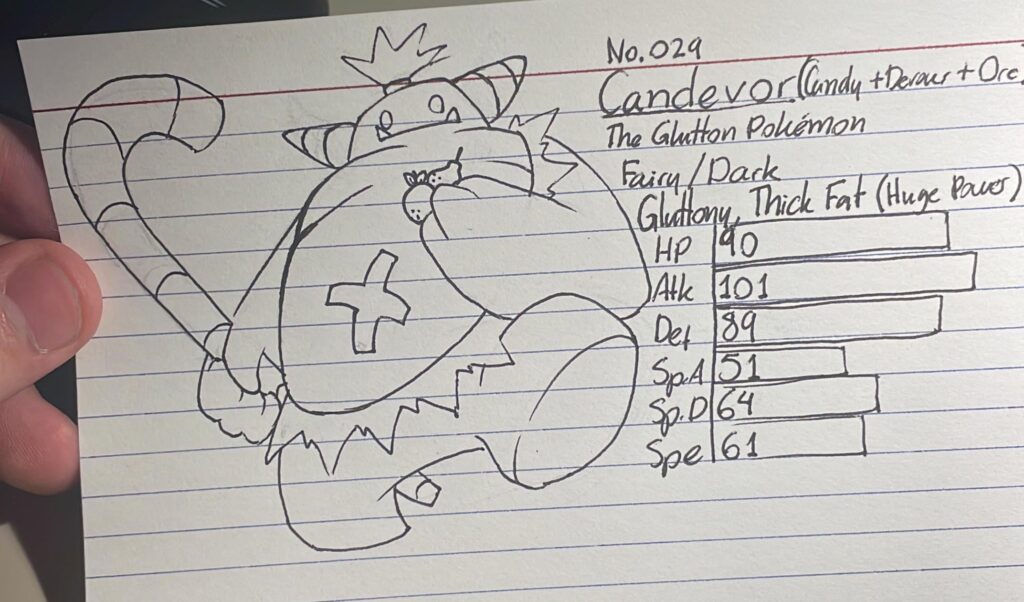 No. 029
Candevor (Candy + Devour + Orc
The Glutton Pokémon
Fairy/Dark
Gluttony, Thick Fat (Huge Power)
HP 90
Atk 101
Def 89
Sp.A 51
Sp.D 64
Spe 61